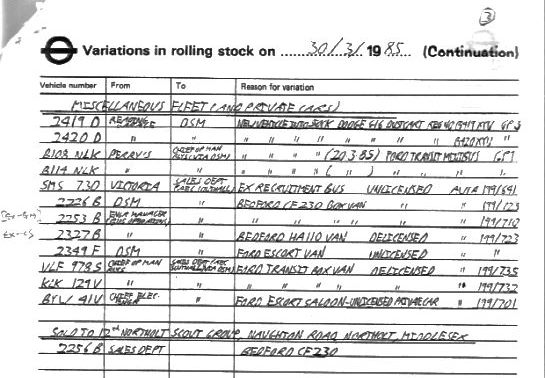 3
Variations in rolling stock on 30/3/1985 (Continuation)
Vehicle number From To Reason for variation
MISCELLANEOUS FLEET (AND PRIVATE CARS)
2419 D DSM NEW VEHICLE INTO DODGE G16 DUSTCART REG NO GP 3
2420 D " " " " " " " " "
B103 NLK PERRY'S CHIEF OF MAN (VIA DSM) " " " " (20.3.85) FORD TRANSIT MINIBUS GP1
B114 NLK " " " " " " ( " ) " " " "
SMS 730 VICTORIA SALES DEPT SOUTHALL EX RECRUITMENT BUS UNLICENSED AUTH 199/691
2226 B DSM " BEDFORD CF230 BOX VAN " " 199/723
2253 B MANAGER (BUS OPERATIONS) " " " " " " 199/710
2327 B " " BEDFORD HA110 VAN DELICENSED " 199/723
2349 F DSM " FORD ESCORT VAN UNLICENSED " "
VLF 978S CHIEF OF MAN BUSES SALES DEPT SOUTHALL (VIA DSM) FORD TRANSIT BOX VAN DELICENSED " 199/735
KLK 129V " " " " " " " " 199/732
BYL 41V CHIEF ELEC. " FORD ESCORT SALOON-UNLICENSED PRIVATE CAR " 199/701
SOLD TO 12nd NORTHOLT SCOUT GROUP, NAUGHTON ROAD, NORTHOLT, MIDDLESEX
2256 B SALES DEPT BEDFORD CF230